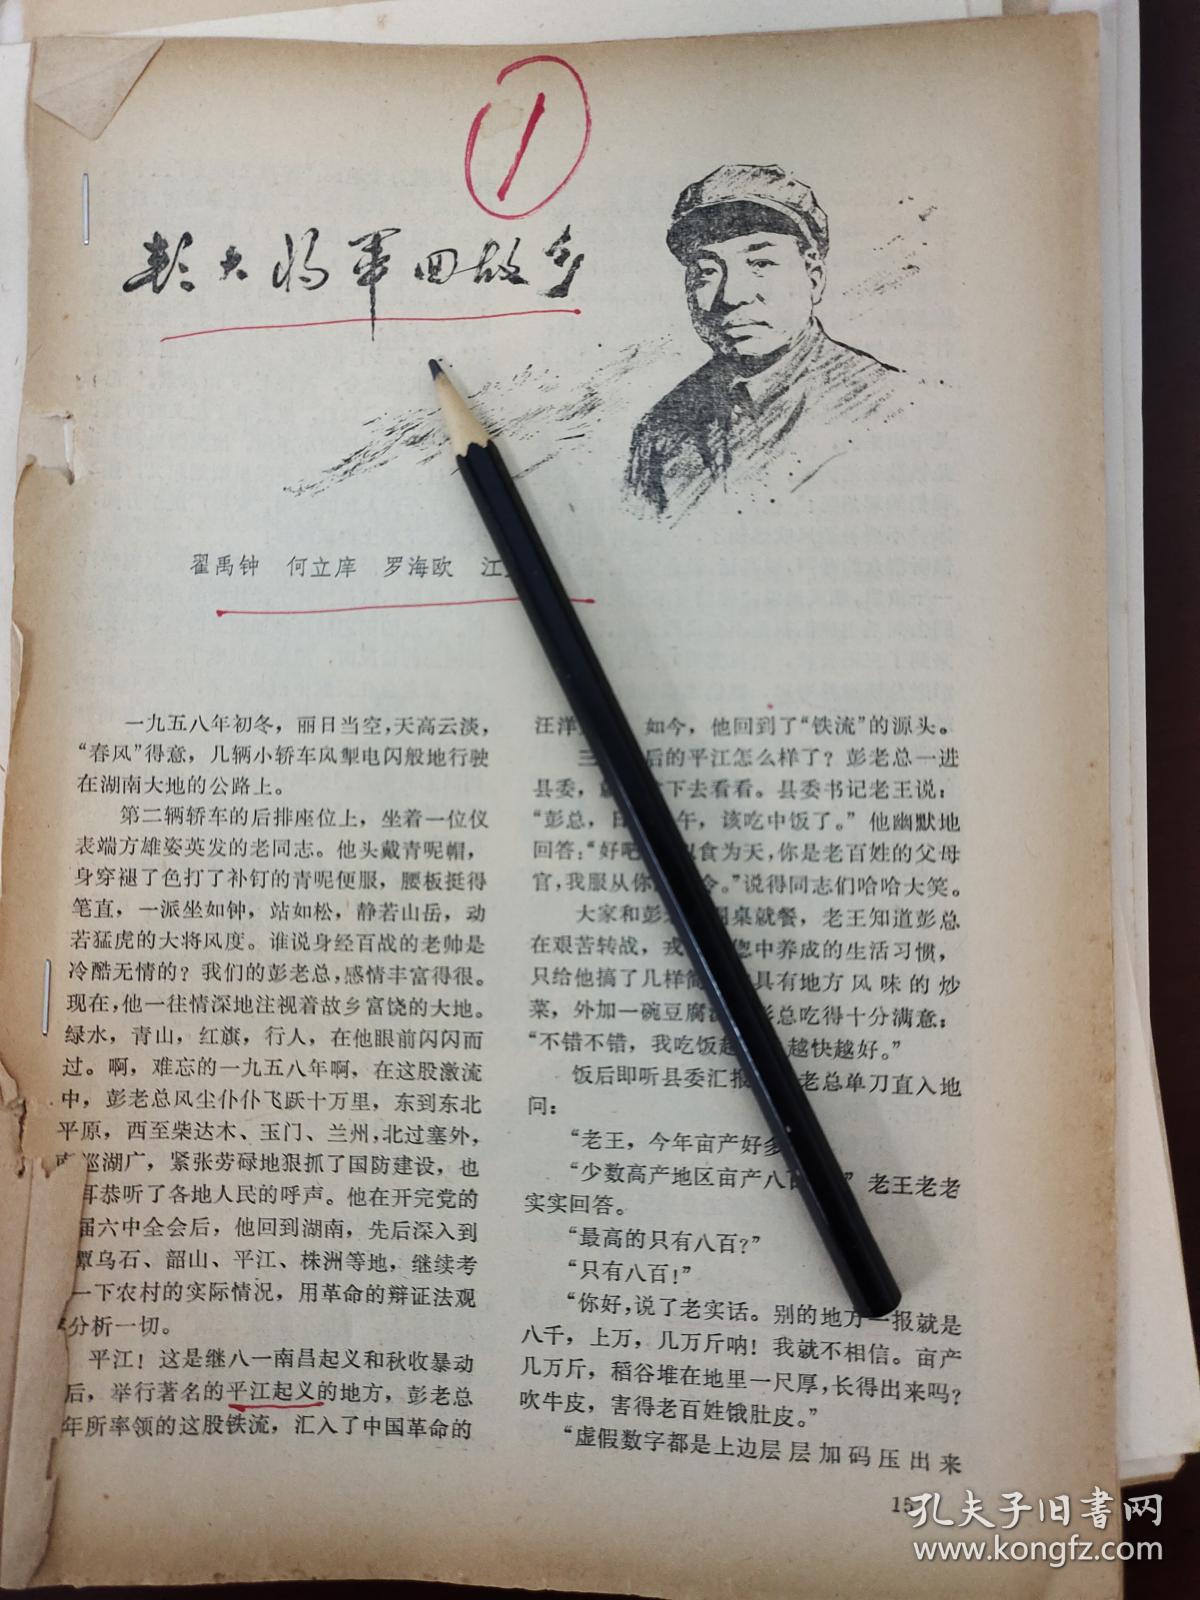 1
彭大将军回故乡
翟禹钟 何立庠 罗海欧 江
一九五八年初冬，丽日当空，天高云淡，
“春风”得意，几辆小轿车风掣电闪般地行驶
在湖南大地的公路上。
第二辆轿车的后排座位上，坐着一位仪
表端方雄姿英发的老同志。他头戴青呢帽，
身穿褪了色打了补钉的青呢便服，腰板挺得
笔直，一派坐如钟，站如松，静若山岳，动
若猛虎的大将风度。谁说身经百战的老帅是
冷酷无情的？我们的彭老总，感情丰富得很。
现在，他一往情深地注视着故乡富饶的大地。
绿水，青山，红旗，行人，在他眼前闪闪而
过。啊，难忘的一九五八年啊，在这股激流
中，彭老总风尘仆仆飞跃十万里，东到东北
平原，西至柴达木、玉门、兰州，北过塞外，
南巡湖广，紧张劳碌地狠抓了国防建设，也
耳恭听了各地人民的呼声。他在开完党的
届六中全会后，他回到湖南，先后深入到
潭乌石、韶山、平江、株洲等地，继续考
一下农村的实际情况，用革命的辩证法观
分析一切。
平江！这是继八一南昌起义和秋收暴动
后，举行著名的平江起义的地方，彭老总
年所率领的这股铁流，汇入了中国革命的
汪洋 如今，他回到了“铁流”的源头。
三 后的平江怎么样了？彭老总一进
县委， 下去看看。县委书记老王说：
“彭总，日 午，该吃中饭了。”他幽默地
回答：“好吧 食为天，你是老百姓的父母
官，我服从你 令。”说得同志们哈哈大笑。
大家和彭 桌就餐，老王知道彭总
在艰苦转战，戎 偬中养成的生活习惯，
只给他搞了几样简 具有地方风味的炒
菜，外加一碗豆腐 彭总吃得十分满意：
“不错不错，我吃饭越 越快越好。”
饭后即听县委汇报 老总单刀直入地
问：
“老王，今年亩产好多
“少数高产地区亩产八百 ”老王老老
实实回答。
“最高的只有八百？”
“只有八百！”
“你好，说了老实话。别的地方一报就是
八千，上万，几万斤呐！我就不相信。亩产
几万斤，稻谷堆在地里一尺厚，长得出来吗？
吹牛皮，害得老百姓饿肚皮。”
“虚假数字都是上边层层加码压出来
15
孔夫子旧书网
www.kongfz.com